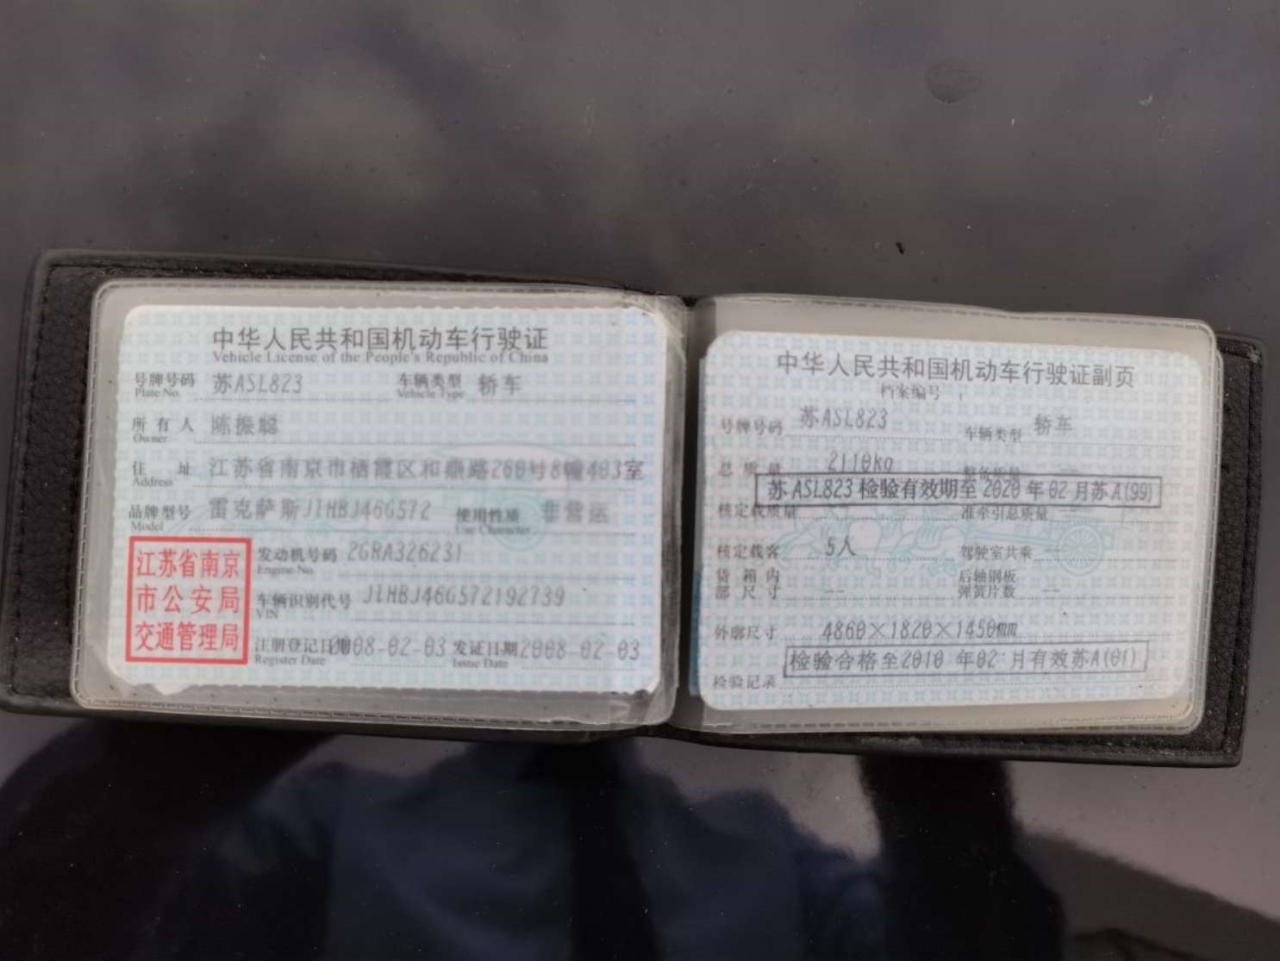 中华人民共和国机动车行驶证
Vehicle License of the People's Republic of China
号牌号码 苏ASL823 车辆类型 轿车
Plate No. Vehicle Type
所有人 陈振聪
Owner
住址 江苏省南京市栖霞区和燕路260号8幢403室
Address
品牌型号 雷克萨斯JTHBJ46G572 使用性质 非营运
Model Use Character
发动机号码 2GRA326231
Engine No.
车辆识别代号 JTHBJ46G572192739
VIN
注册登记日期 2008-02-03 发证日期 2008-02-03
Register Date Issue Date
江苏省南京
市公安局
交通管理局
中华人民共和国机动车行驶证副页
档案编号
号牌号码 苏ASL823 车辆类型 轿车
总质量 2110kg
苏ASL823 检验有效期至2020年02月苏A(99)
核定载质量 -- 准牵引总质量 --
核定载客 5人 驾驶室共乘 --
货箱内 后轴钢板
部尺寸 -- 弹簧片数 --
外廓尺寸 4860×1820×1450mm
检验合格至2010年02月有效苏A(01)
检验记录